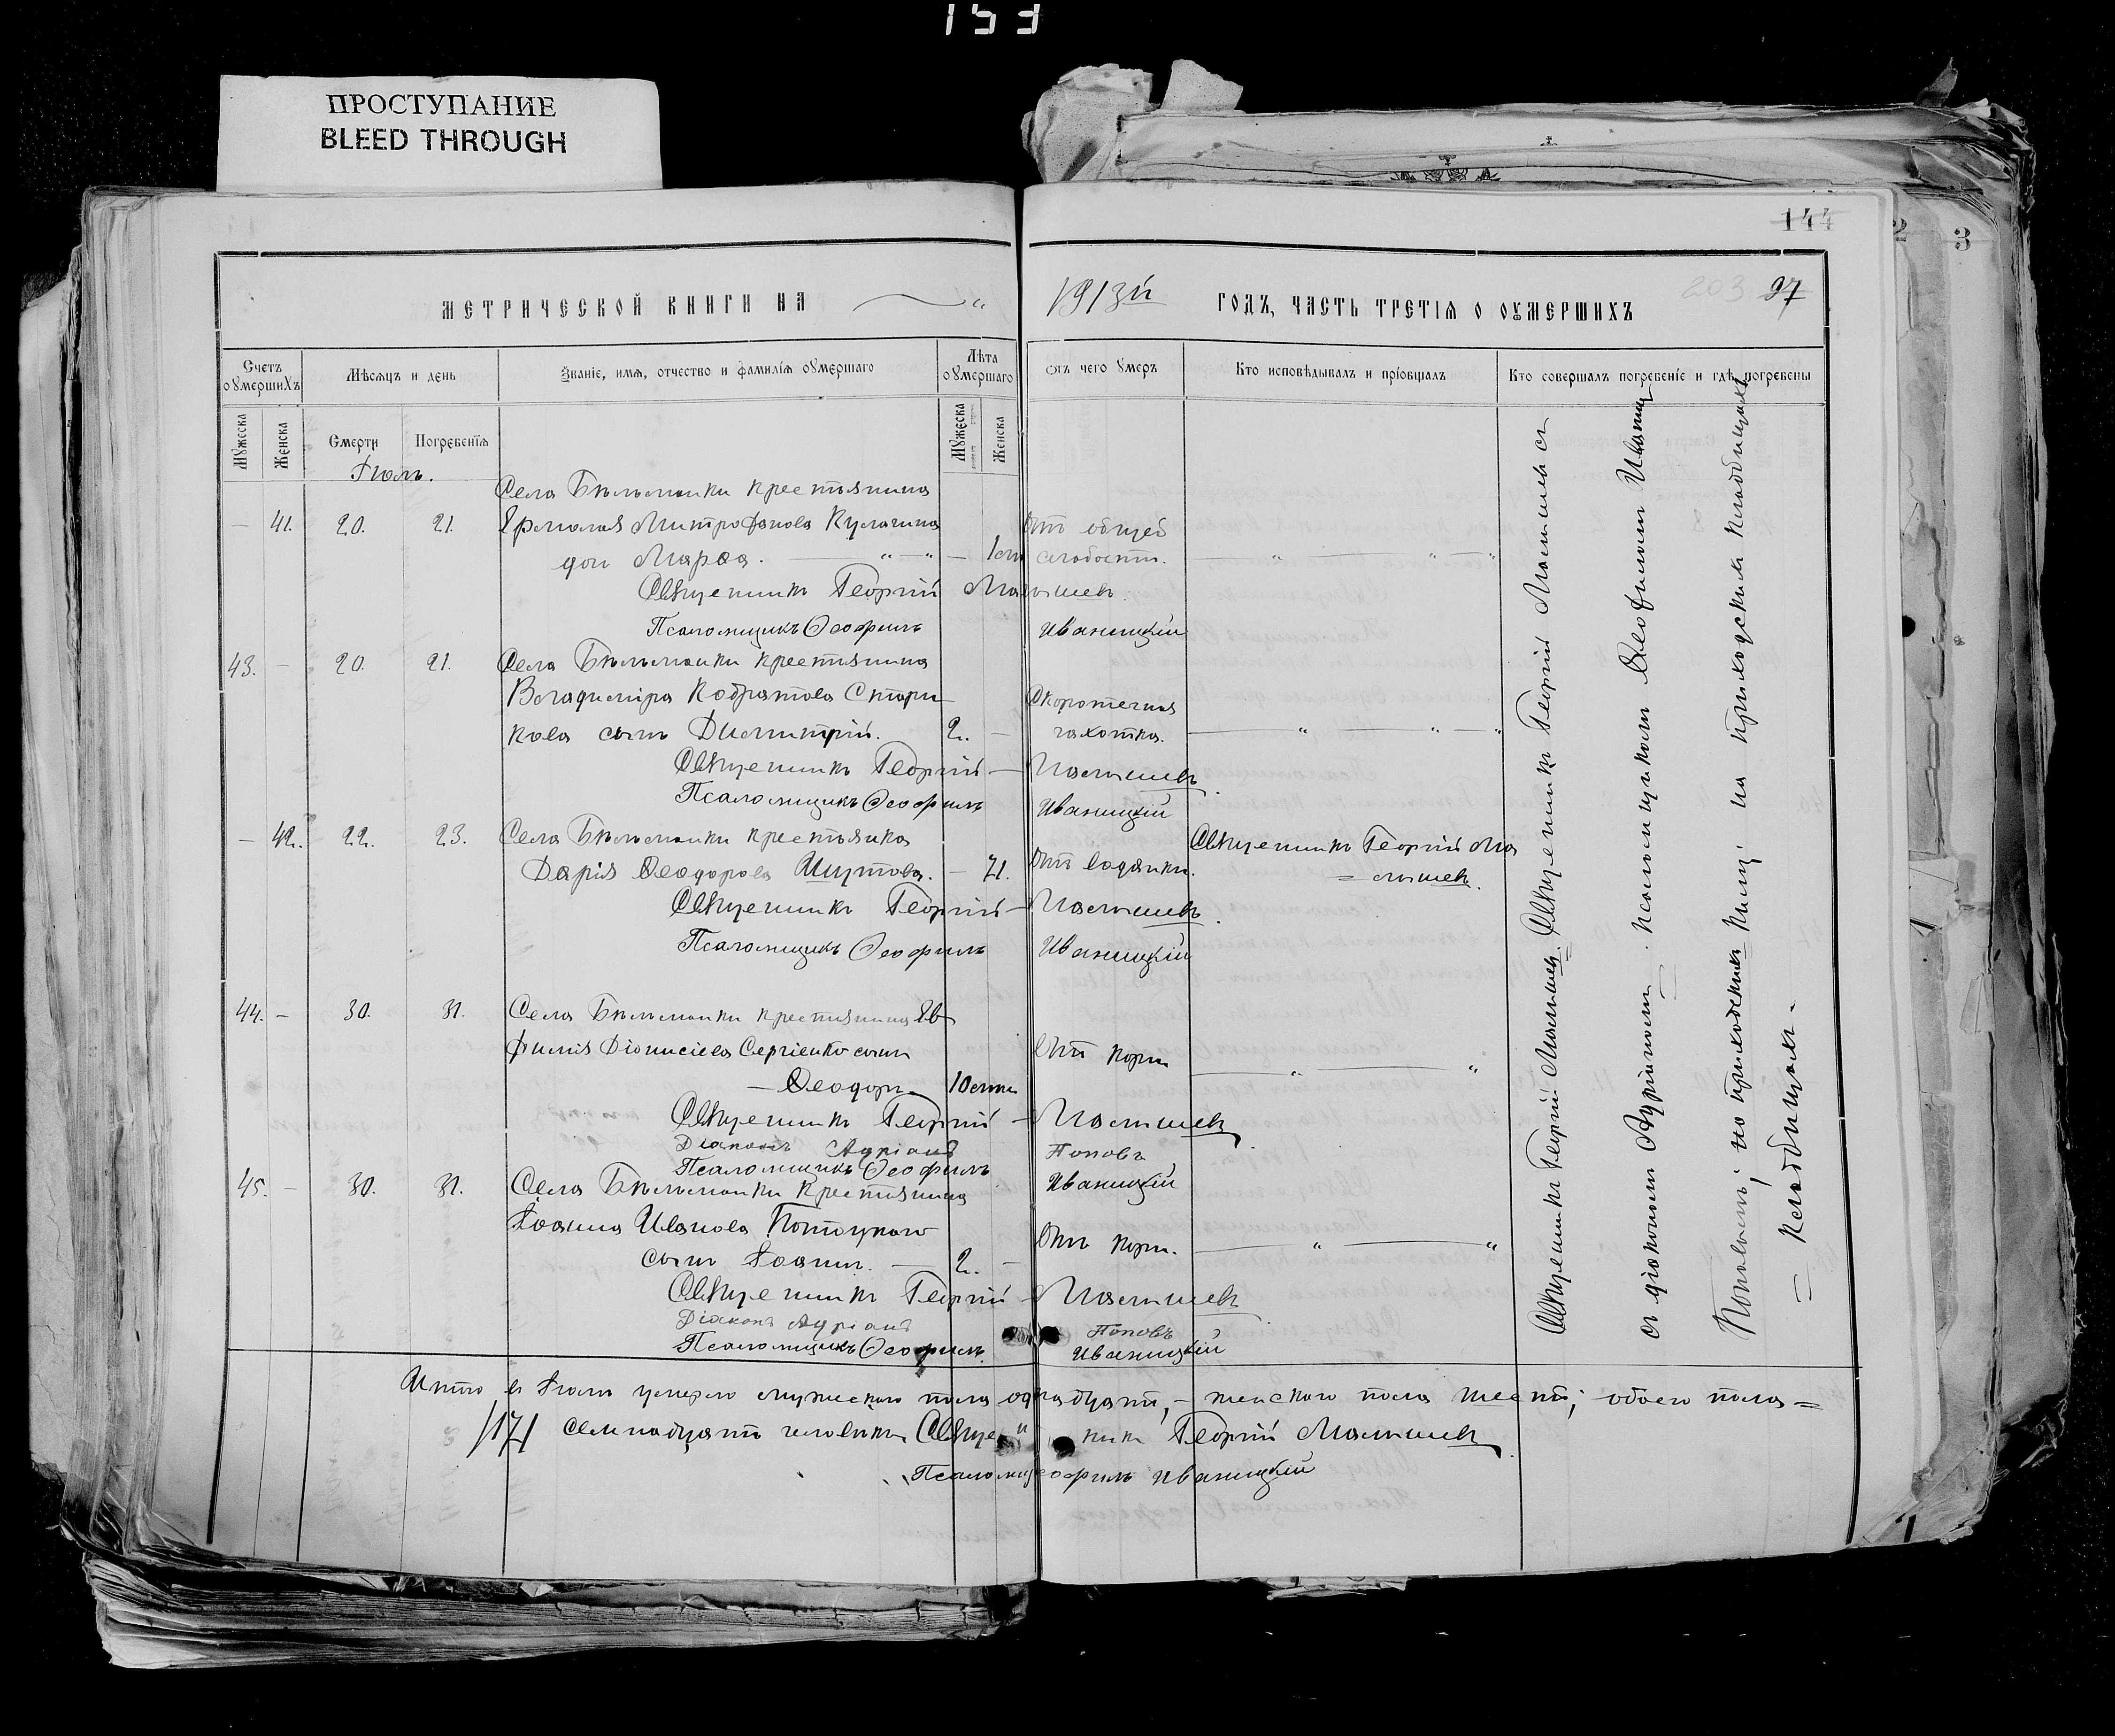 153
ПРОСТУПАНИЕ
BLEED THROUGH
144
2
3
МЕТРИЧЕСКОЙ КНИГИ НА
1913й
ГОДЪ, ЧАСТЬ ТРЕТІѦ О ОУМЕРШИХЪ
203 97
Счетъ оумершихъ
Мѣсяцъ и день
Званіе, имя, отчество и фамилія оумершаго
Лѣта оумершаго
Отъ чего умеръ
Кто исповѣдывалъ и пріобщалъ
Кто совершалъ погребеніе и гдѣ погребены
Мужеска
Женска
Смерти
Погребенія
Мужеска
Женска
Іюль.
Села Бѣльманки крестьянина
— 41. 20. 21. Ермолая Митрофанова Кулагина Отъ общей
дочь Марѳа. — 1 слабости.
Священникъ Георгій Малышевъ.
Псаломщикъ Ѳеофилъ Иваницкій
43. — 20. 21. Села Бѣльманки крестьянина
Владиміра Кодратова Стари Скоротечная
кова сынъ Димитрій. 2. — чахотка.
Священникъ Георгій Малышевъ.
Псаломщикъ Ѳеофилъ Иваницкій
— 42. 22. 23. Села Бѣльманки крестьянка Священникъ Георгій Ма
Дарія Ѳеодорова Шутова. — 71. Отъ водянки. = лышевъ.
Священникъ Георгій Малышевъ.
Псаломщикъ Ѳеофилъ Иваницкій
44. — 30. 31. Села Бѣльманки крестьянина Ев
фимія Діонисіева Сергіенко сынъ Отъ кори
— Ѳеодоръ 10
Священникъ Георгій Малышевъ.
Діаконъ Адріанъ Поповъ
Псаломщикъ Ѳеофилъ Иваницкій
45. — 30. 31. Села Бѣльманки крестьянина
Іоанна Иванова Потоцкаго Отъ кори.
сынъ Іоаннъ. — 2. —
Священникъ Георгій Малышевъ.
Діаконъ Адріанъ Поповъ
Псаломщикъ Ѳеофилъ Иваницкій
Священникъ Георгій Малышевъ. Священникъ Георгій Малышевъ съ
съ діакономъ Адріаномъ псаломщикомъ Ѳеофиломъ Иваниц
Поповымъ; на приходскомъ кимъ на приходскомъ кладбищахъ
= кладбищахъ.
Итого въ Іюлѣ умерло мужескаго пола одинадцать, — женскаго пола шесть; обоего пола =
/17/ семнадцать человѣкъ. Священникъ Георгій Малышевъ.
Ѳеофилъ Иваницкій